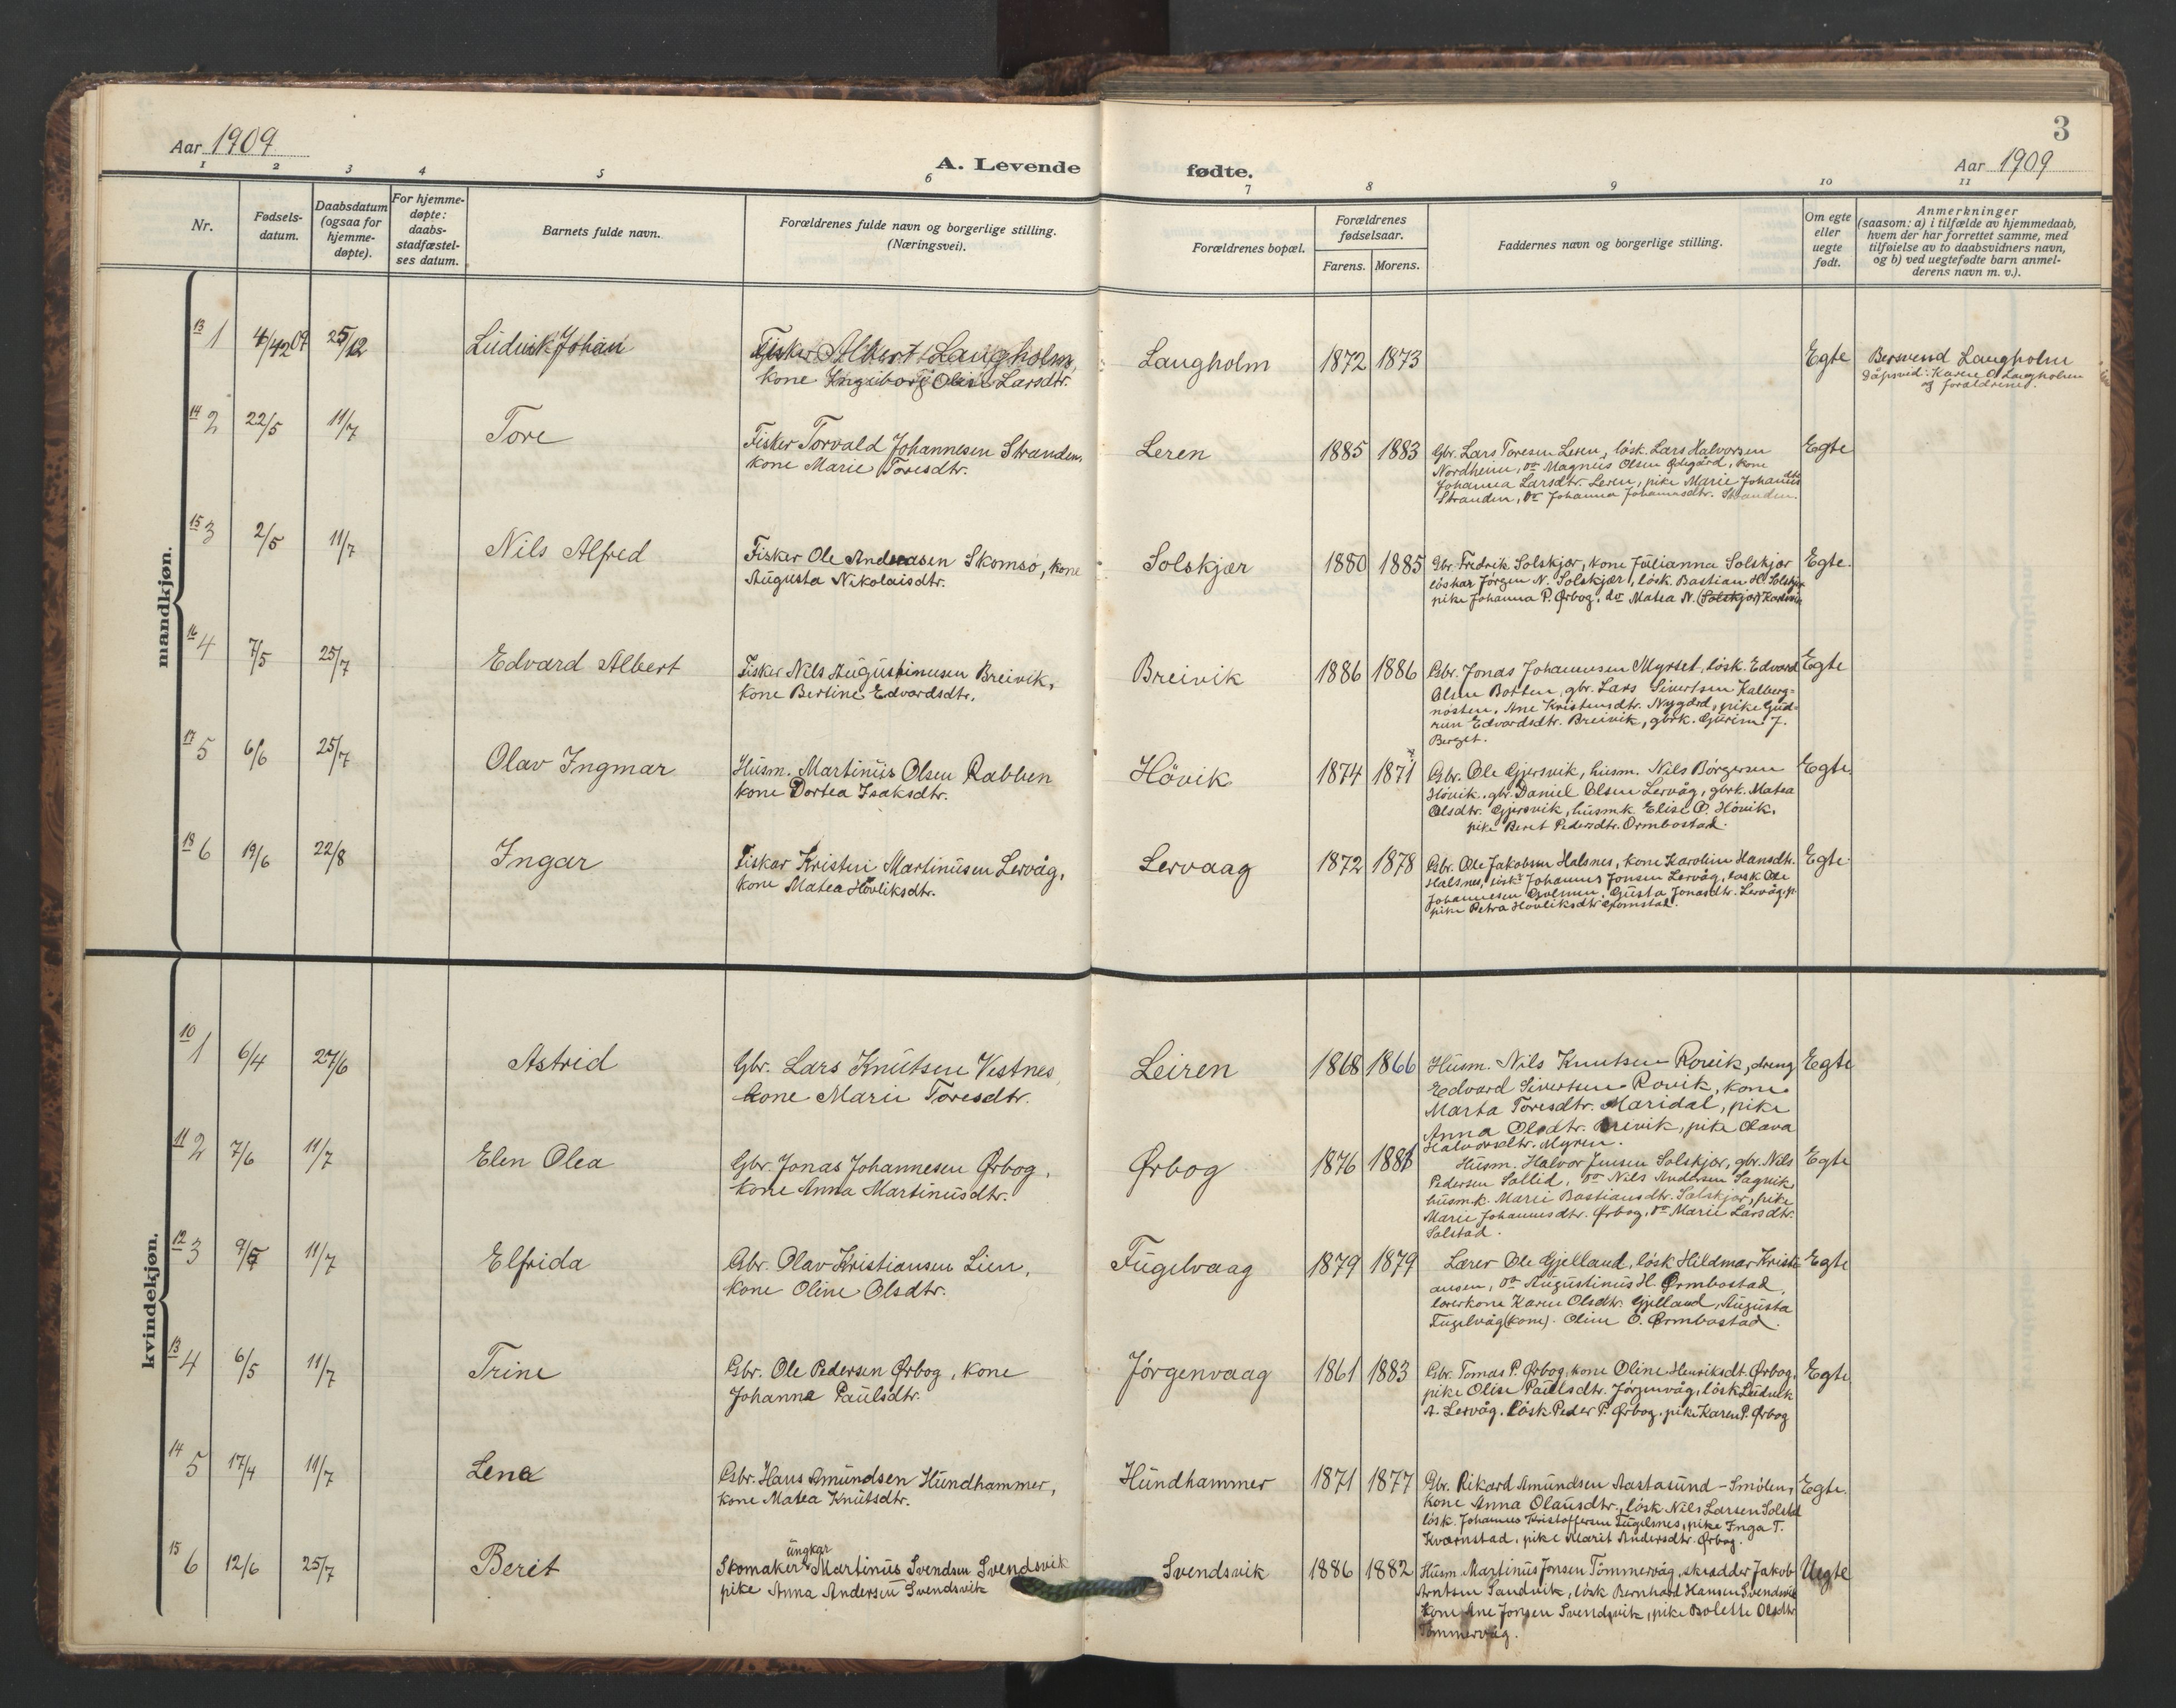 3
Aar 1909
A. Levende fødte.
Aar 1909
1 2 3 4 5 6 7 8 9 10 11
Nr.
Fødsels-
datum.
Daabsdatum
(ogsaa for
hjemme-
døpte).
For hjemme-
døpte:
daabs-
stadfæstel-
ses datum.
Barnets fulde navn.
Forældrenes fulde navn og borgerlige stilling.
(Næringsvei).
Forældrenes bopæl.
Forældrenes
fødselsaar.
Farens. Morens.
Faddernes navn og borgerlige stilling.
Om egte
eller
uegte
født.
Anmerkninger
(saasom: a) i tilfælde av hjemmedaab,
hvem der har forrettet samme, med
tilføielse av to daabsvidners navn,
og b) ved uegtefødte barn anmel-
derens navn m. v.).
mandkjøn.
13 1 25/12 Ludvik Johan
Fisker Albert Laugholm,
kone Ingeborg Oline Larsdtr.
Laugholm 1872 1873 Egte
Bersvend Laugholm
Dåpsvid: Karen O Laugholm
og forældrene.
14 2 22/5 11/7 Tore
Fisker Torvald Johannesen Stranden,
kone Marie Toresdtr.
Leren 1885 1883
Gbr. Lars Toresen Leren, løsk. Lars Halvorsen
Nordheim, do Magnus Olsen Ødegård, kone
Johanna Larsdtr. Leren, pike Marie Johannesdtr
Stranden, do Johanna Johannesdtr. Stranden.
Egte
15 3 2/5 11/7 Nils Alfred
Fisker Ole Andreasen Skomsø, kone
Augusta Nikolaisdtr.
Solskjær 1880 1885
Gbr. Fredrik Solskjær, kone Julianna Solskjær
løskar Jørgen N. Solskjær, løsk. Bastian H. Solskjær
pike Johanna P. Ørbog, do Matea N. (Solskjær)
Egte.
16 4 7/5 25/7 Edvard Albert
Fisker Nils Augustinusen Breivik,
kone Bertine Edvardsdtr.
Breivik 1886 1886
Gbr. Jonas Johannesen Myrset, løsk. Edvard
Olsen Botten, gbr. Lars Sivertsen Kalberg=
nøsten, Ane Kristensdtr. Nygård, pike Gud=
run Edvardsdtr. Breivik, gbrk. Gurine J.
Berget.
Egte
17 5 6/6 25/7 Olav Ingmar
Husm. Martinus Olsen Rabben
kone Dortea Isaksdtr.
Hövik 1874 1871
Gbr. Ole Gjersvik, husm. Nils Børgersen
Hövik, gbr. Daniel Olsen Lervåg, gbrk. Matea
Olsdtr. Gjersvik, husmk. Elise O. Hövik,
pike Beret Pedersdtr. Ormbostad.
Egte.
18 6 19/6 22/8 Ingar
Fisker Kristen Martinusen Lervåg,
kone Matea Hovliksdtr.
Lervaag 1872 1878
Gbr. Ole Jakobsen Halsnes, kone Karoline Hansdtr.
Halsnes, løsk. Johannes Jonsen Lervåg, løsk Ole
Johannesen, Gusta Jonasdtr. Lervåg, p.
pike Petra Hovliksdtr
Egte.
kvindekjøn.
10 1 6/4 27/6 Astrid
Gbr. Lars Knutsen Vestnes,
kone Marie Toresdtr.
Leiren 1868 1866
Husm. Nils Knutsen Rovik, dreng
Edvard Sivertsen Rovik, kone
Marta Toresdtr. Maridal, pike
Anna Olsdtr. Breivik, pike Olava
Halvorsdtr. Myren.
Egte
11 2 7/6 11/7 Elen Olea
Gbr. Jonas Johannesen Ørbog,
kone Anna Martinusdtr.
Ørbog 1876 1881
Husm. Halvor Jensen Solskjær, gbr. Nils
Pedersen Sollid, do Nils Andersen Sagvik,
husm.k. Marie Bastiansdtr. Solskjær, pike
Marie Johannesdtr. Ørbog, do Marie Larsdtr.
Solstad.
Egte
12 3 11/7 Elfrida
Gbr. Olav Kristiansen Lien,
kone Oline Olsdtr.
Fugelvaag 1879 1879
Lærer Ole Gjelland, løsk Hildmar Kristi-
ansen, do Augustinus H. Ørmbostad,
lærerkone Karen Olsdtr. Gjelland, Augusta
Fugelvåg (kone). Oline O. Ørmbostad.
Egte
13 4 6/5 11/7 Trine
Gbr. Ole Pedersen Ørbog, kone
Johanna Paulsdtr.
Jörgenvaag 1861 1883
Gbr. Tomas P. Ørbog, kone Oline Henriksdt. Ørbog,
pike Olise Paulsdtr. Jörgenvåg, løsk Ludvik
A. Lervåg. Løsk. Peder P. Ørbog. pike Karen P. Ørbog
Egte
14 5 17/4 11/7 Lena
Gbr. Hans Amundsen Hundhammer,
kone Matea Knutsdtr.
Hundhammer 1871 1877
Gbr. Rikard Amundsen Aastasund - Smølen,
kone Anna Olausdtr., løsk. Nils Larsen Solstad
løsk. Johannes Kristoffersen Fugelsnes, pike Inga T.
Kvarnstad, pike Marit Andersdtr. Ørbog.
Egte.
15 6 12/6 25/7 Berit
Skomaker ungkar Martinus Svendsen Svendsvik
pike Anna Andersen Svendsvik
Svendsvik 1886 1882
Husm. Martinus Jonsen Tömmervåg, skrædder Jakob
Arntsen Sandvik, løsk Bernhard Hansen Svendsvik
kone Ane Jonsen Svendsvik, pike Bolette Olsdtr
Tömmervåg.
Uegte